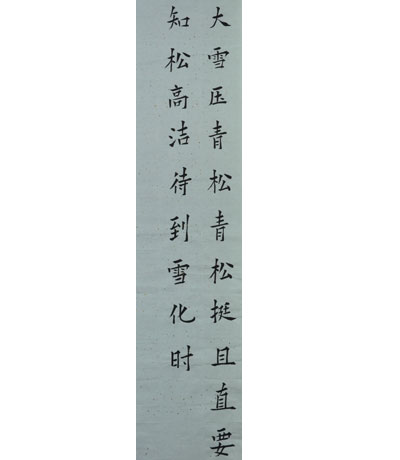 大雪压青松青松挺且直要
知松高洁待到雪化时